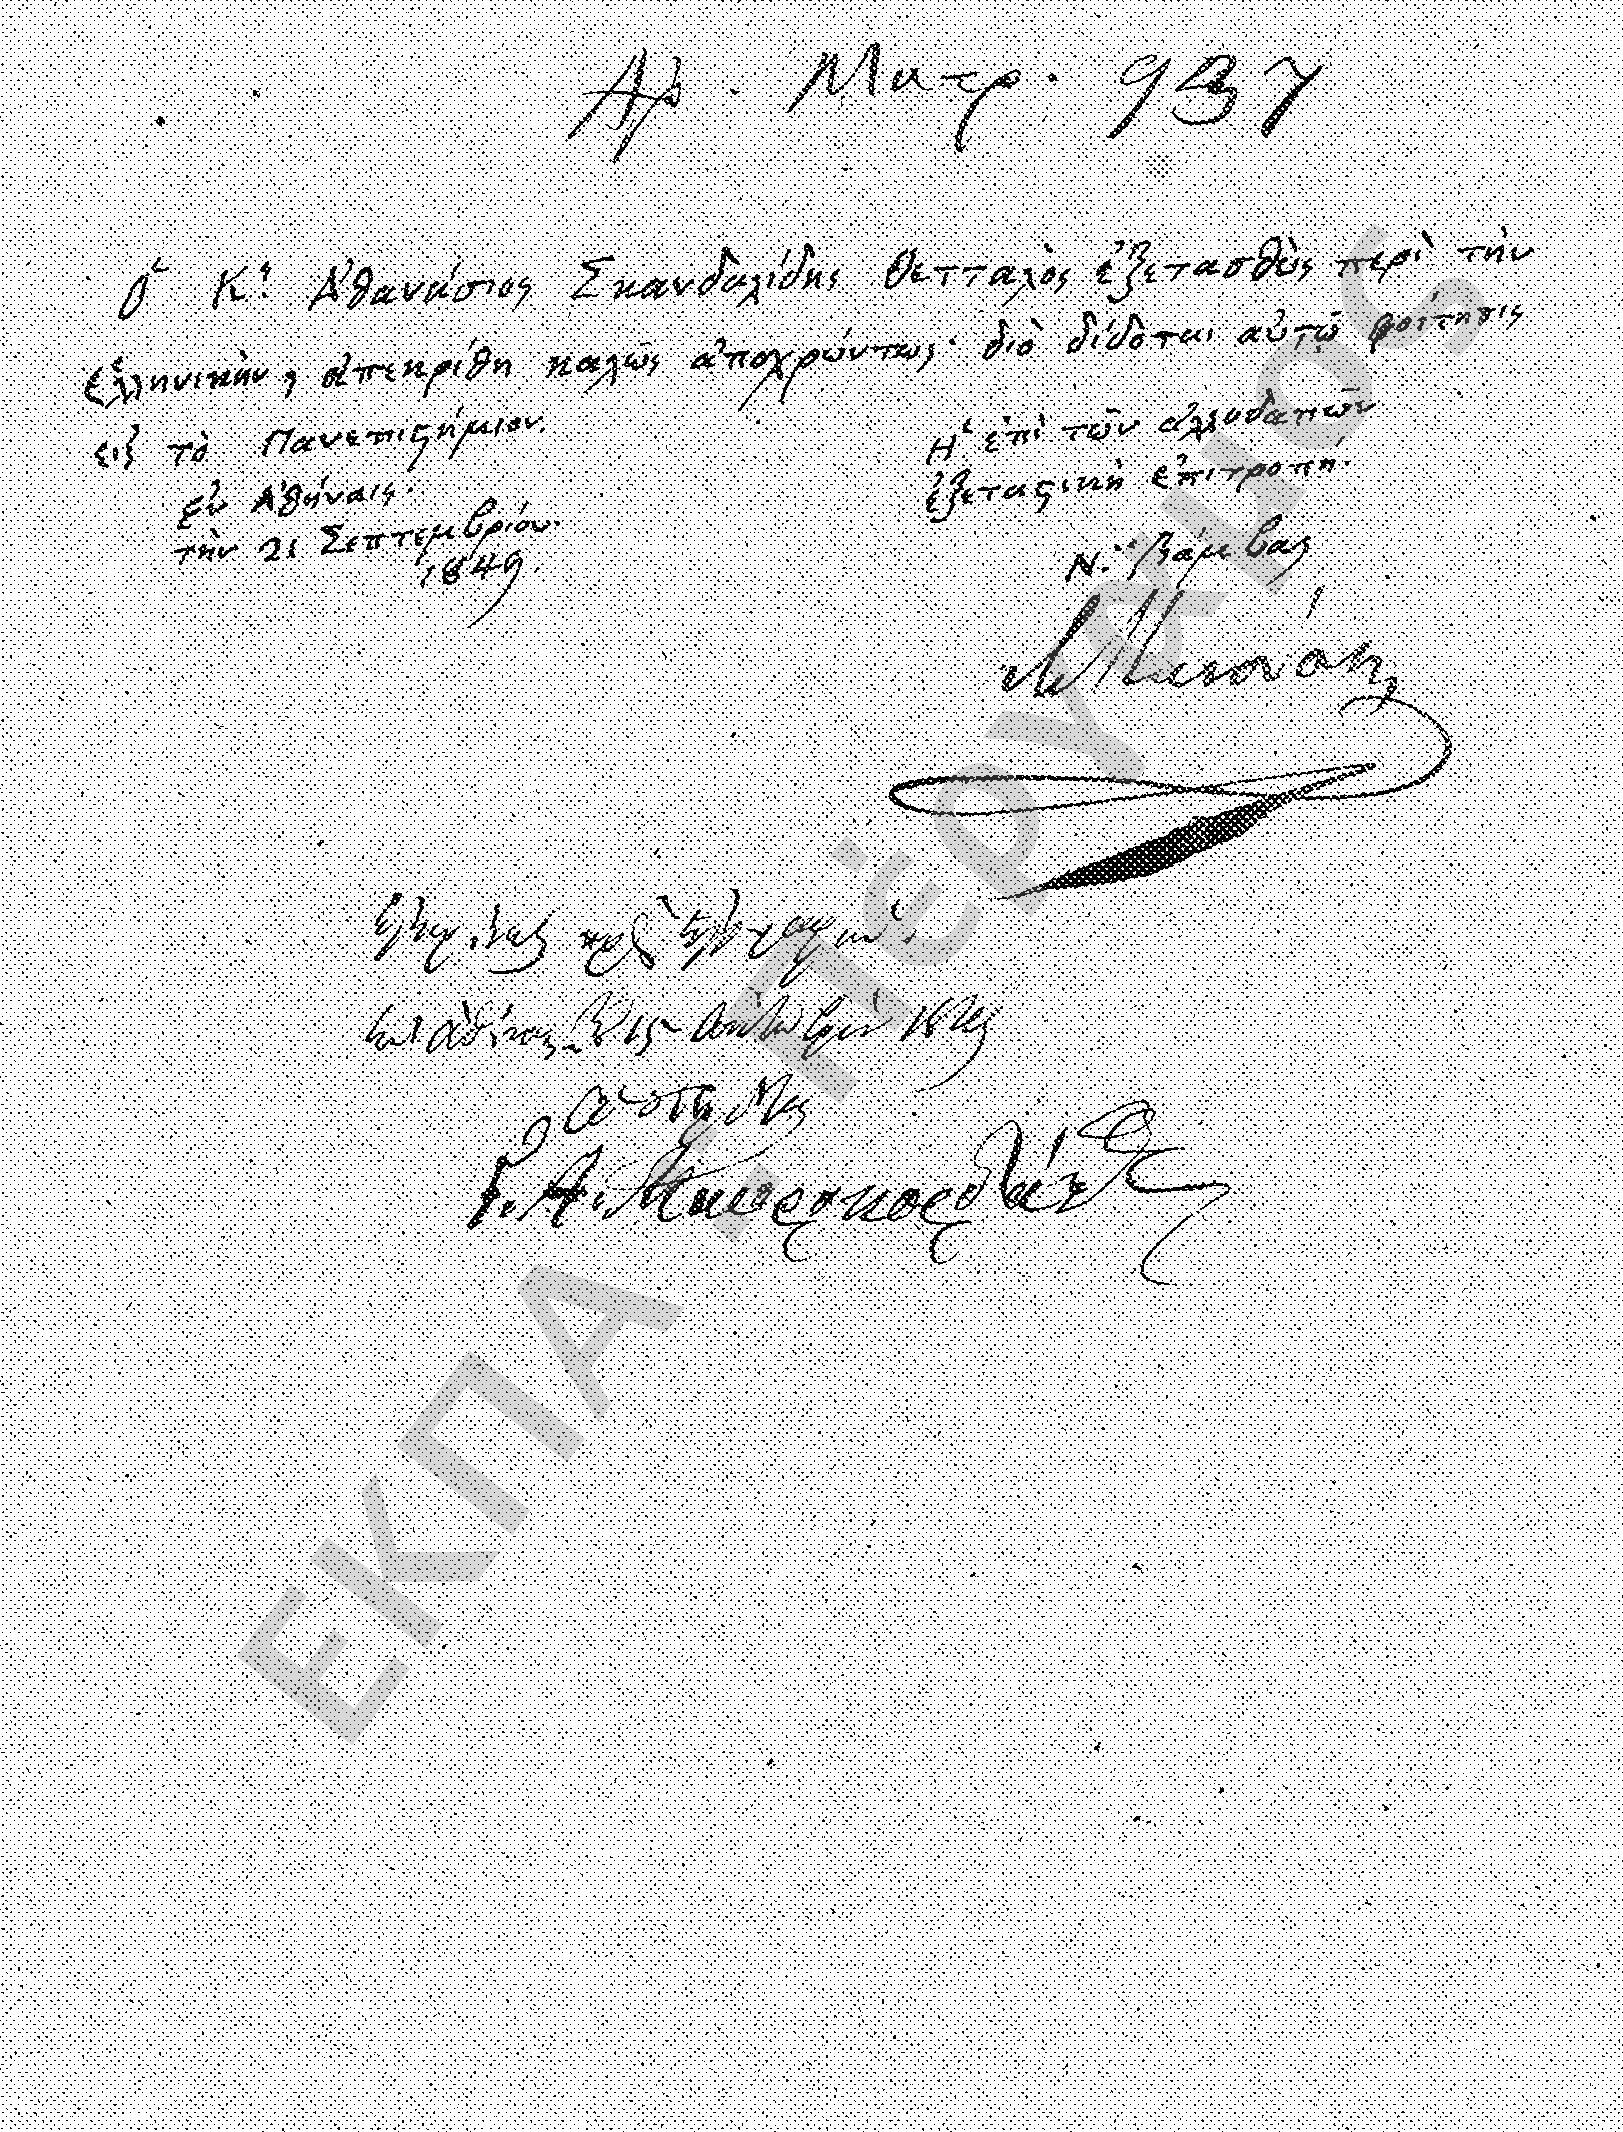 Αρ. Μητρ. 937
Ὁ Κς. Ἀθανάσιος Σκανδαλίδης Θετταλὸς ἐξετασθεὶς περὶ τὴν
Ἑλληνικὴν, ἀπεκρίθη καλῶς ἀποχρώντως· διὸ δίδοται αὐτῷ φοίτησις
εἰς τὸ Πανεπιστήμιον.
Ἡ ἐπὶ τῶν ἀλλοδαπῶν
ἐξεταστικὴ ἐπιτροπή.
Ἐν Ἀθήναις.
τὴν 21 Σεπτεμβρίου.
1849.
Ν. Βάμβας
Ἐν Ἀθήναις 15 Ὀκτωβρίου
Γ. Α. Μαυροκορδάτος
ΕΚΠΑ - Πέργαμος